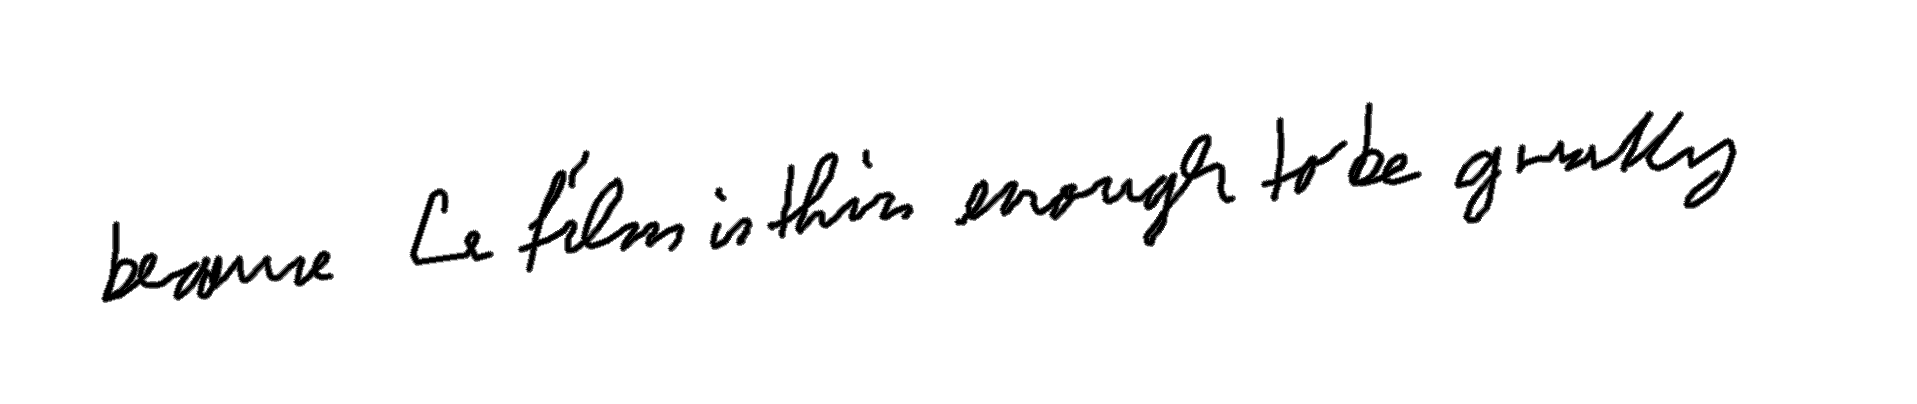 because Le film is thin enough to be greatly